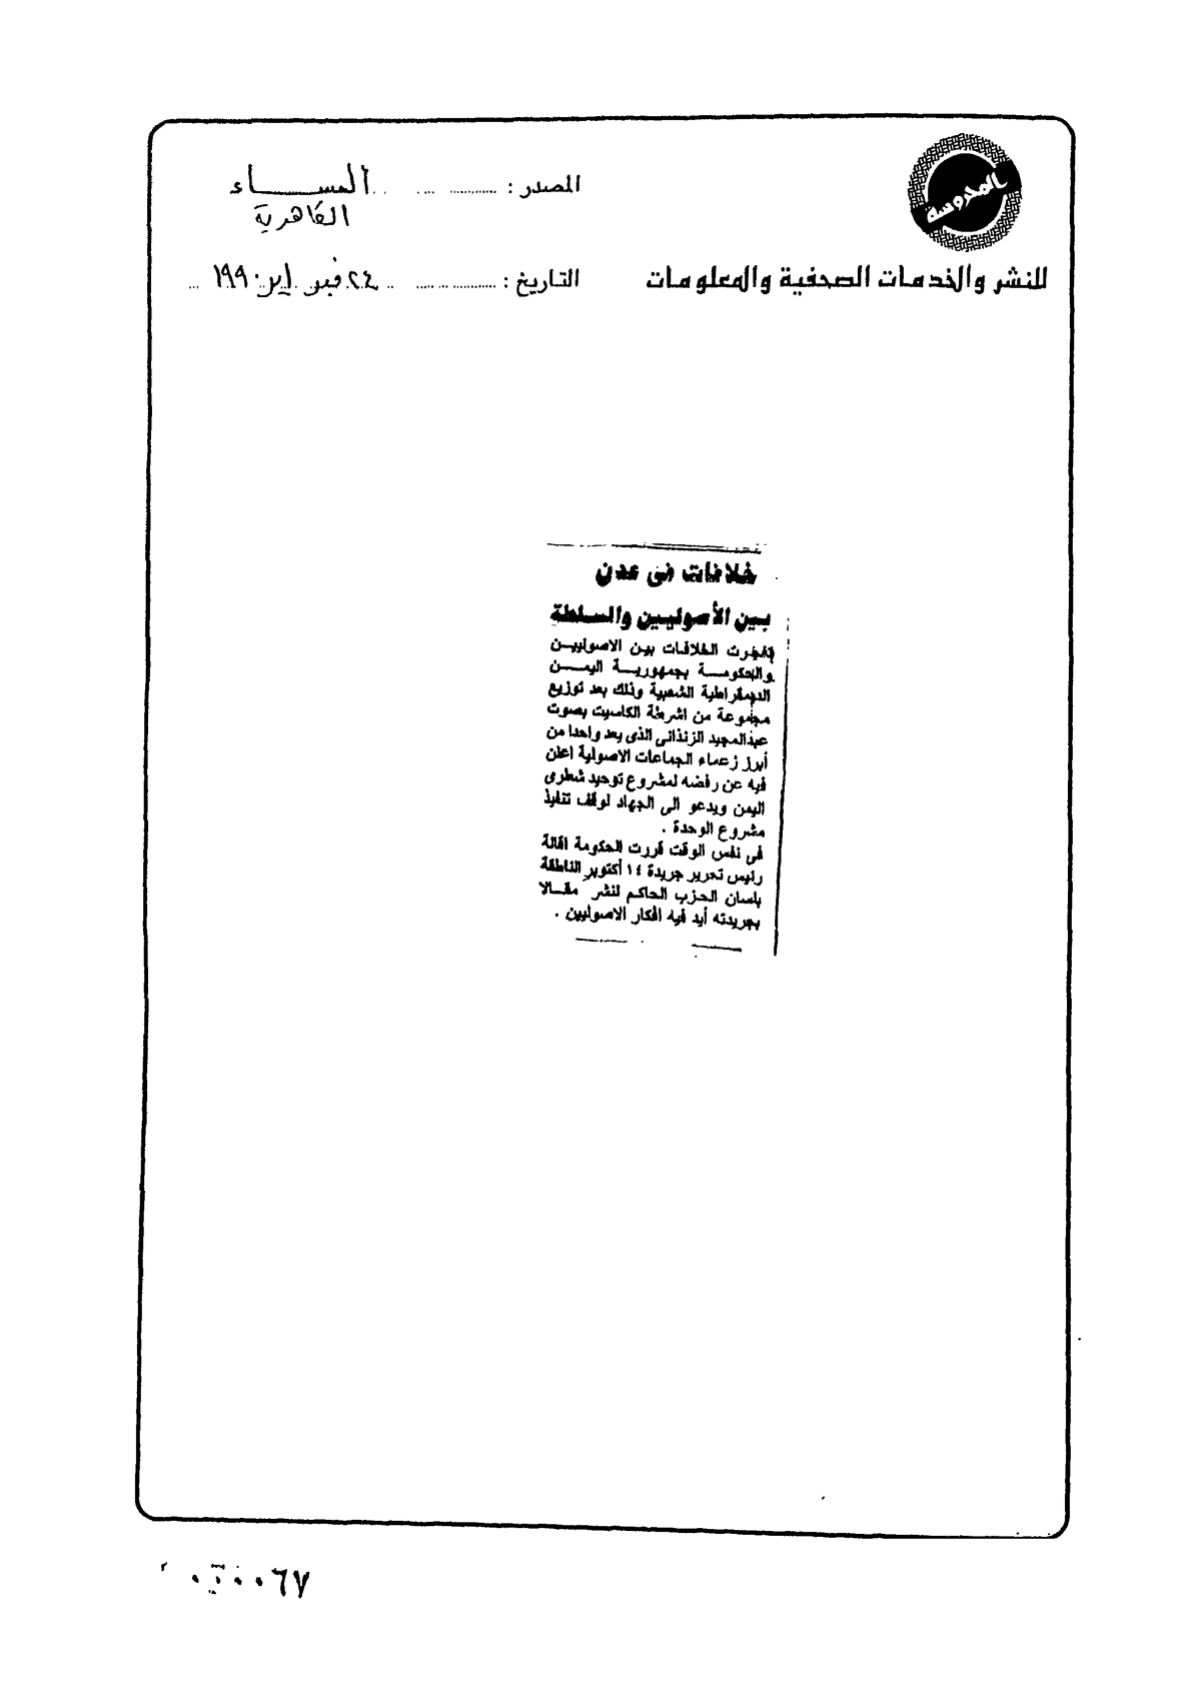 المحروسة
للنشر والخدمات الصحفية والمعلومات
المصدر : المساء
القاهرية
التاريخ : ٢٤ فبراير ١٩٩٠
خلافات فى عدن
بين الأصوليين والسلطة
تفجرت الخلافات بين الاصوليين
والحكومة بجمهورية اليمن
الديمقراطية الشعبية وذلك بعد توزيع
مجموعة من اشرطة الكاسيت بصوت
عبدالمجيد الزندانى الذى يعد واحدا من
أبرز زعماء الجماعات الاصولية اعلن
فيه عن رفضه لمشروع توحيد شطرى
اليمن ويدعو الى الجهاد لوقف تنفيذ
مشروع الوحدة .
فى نفس الوقت قررت الحكومة اقالة
رئيس تحرير جريدة ١٤ أكتوبر الناطقة
بلسان الحزب الحاكم لنشر مقالا
بجريدته أيد فيه افكار الاصوليين .